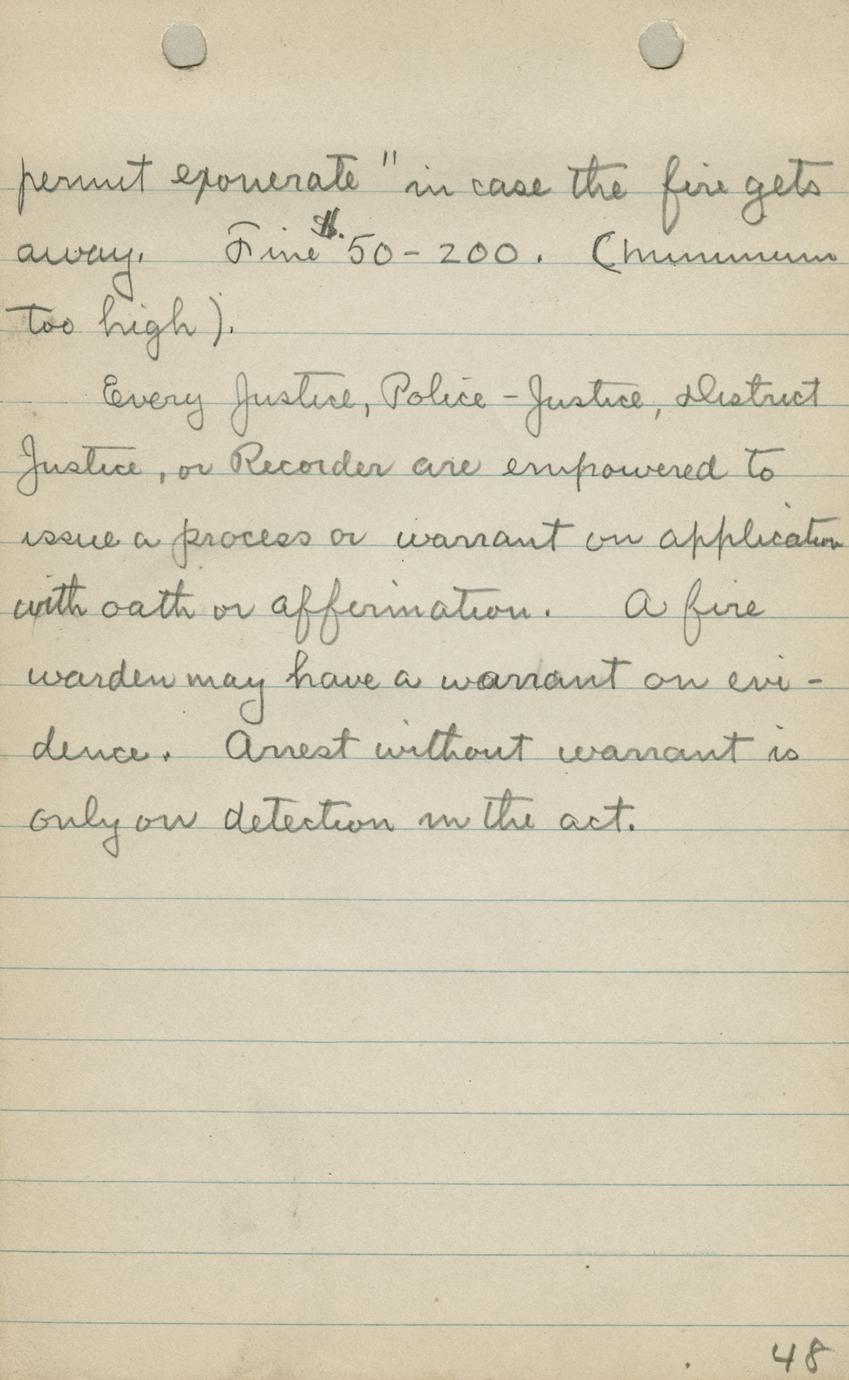 permit exonerate" in case the fire gets
away. Fine $50-200. (Minimum
too high).
Every Justice, Police-Justice, District
Justice, or Recorder are empowered to
issue a process or warrant on application
with oath or affirmation. A fire
warden may have a warrant on evi-
dence. Arrest without warrant is
only on detection in the act.
48